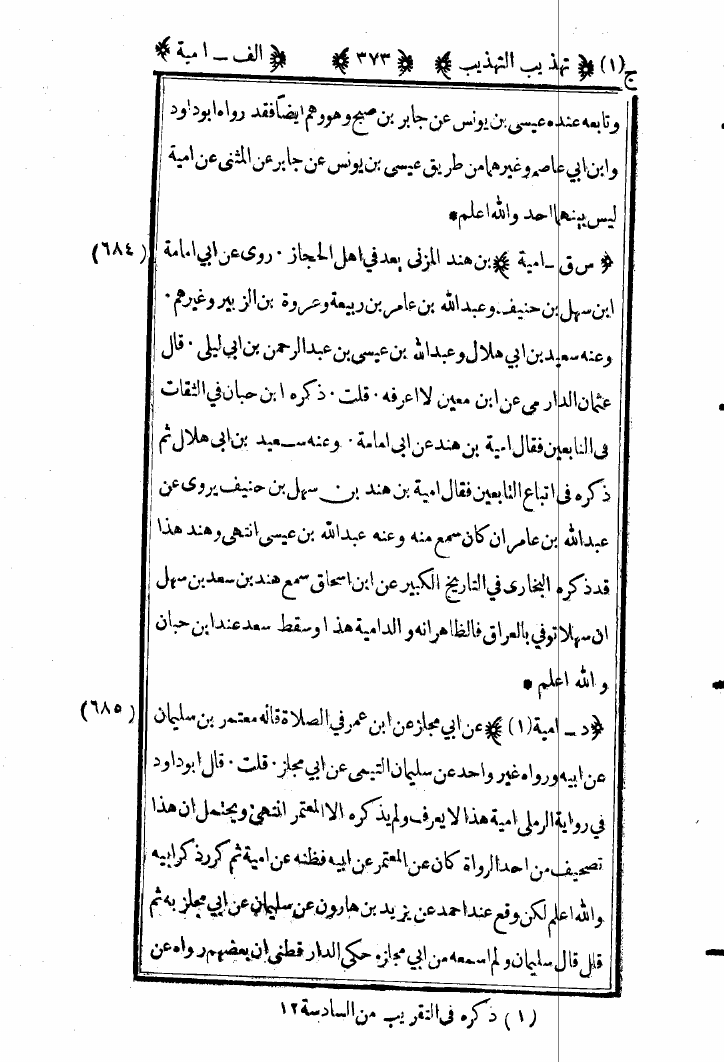 ج(١) ﴿ تهذيب التهذيب ﴾ ﴿ ٣٧٣ ﴾ ﴿ الف ـ امية ﴾
وتابعه عنده عيسى بن يونس عن جابر بن صبح وهو وهم ايضاً فقد رواه ابو داود
وابن ابي عاصم وغيرهما من طريق عيسى بن يونس عن جابر عن المثنى عن امية
ليس بينهما احد والله اعلم*
﴿ س ق ـ امية ﴾ بن هند المزنى يعد في اهل الحجاز · روى عن ابي امامة (٦٨٤)
ابن سهل بن حنيف وعبد الله بن عامر بن ربيعة وعروة بن الزبير وغيرهم ·
وعنه سعيد بن ابي هلال وعبد الله بن عيسى بن عبد الرحمن بن ابي ليلى · قال
عثمان الدارمى عن ابن معين لا اعرفه · قلت · ذكره ابن حبان في الثقات
فى التابعين فقال امية بن هند عن ابى امامة · وعنه سعيد بن ابى هلال ثم
ذكره فى اتباع التابعين فقال امية بن هند بن سهل بن حنيف يروى عن
عبد الله بن عامر ان كان سمع منه وعنه عبد الله بن عيسى انتهى وهند هذا
قد ذكره البخارى في التاريخ الكبير عن ابن اسحاق سمع هند بن سعد بن سهل
ان سهلا توفي بالعراق فالظاهر انه والد امية هذا وسقط سعد عند ابن حبان
والله اعلم *
﴿ د ـ امية (١) ﴾ عن ابي مجلز عن ابن عمر في الصلاة قاله معتمر بن سليمان (٦٨٥)
عن ابيه ورواه غير واحد عن سليمان التيمى عن ابي مجلز · قلت · قال ابو داود
في رواية الرملى امية هذا لا يعرف ولم يذكره الا المعتمر انتهى ويحتمل ان هذا
تصحيف من احد الرواة كان عن المعتمر عن ابيه فظنه عن امية ثم كرر ذكر ابيه
والله اعلم لكن وقع عند احمد عن يزيد بن هارون عن سليمان عن ابي مجلز به ثم
قال قال سليمان ولم اسمعه من ابي مجلز وحكى الدارقطنى ان بعضهم رواه عن
(١) ذكره فى التقريب من السادسة ١٢